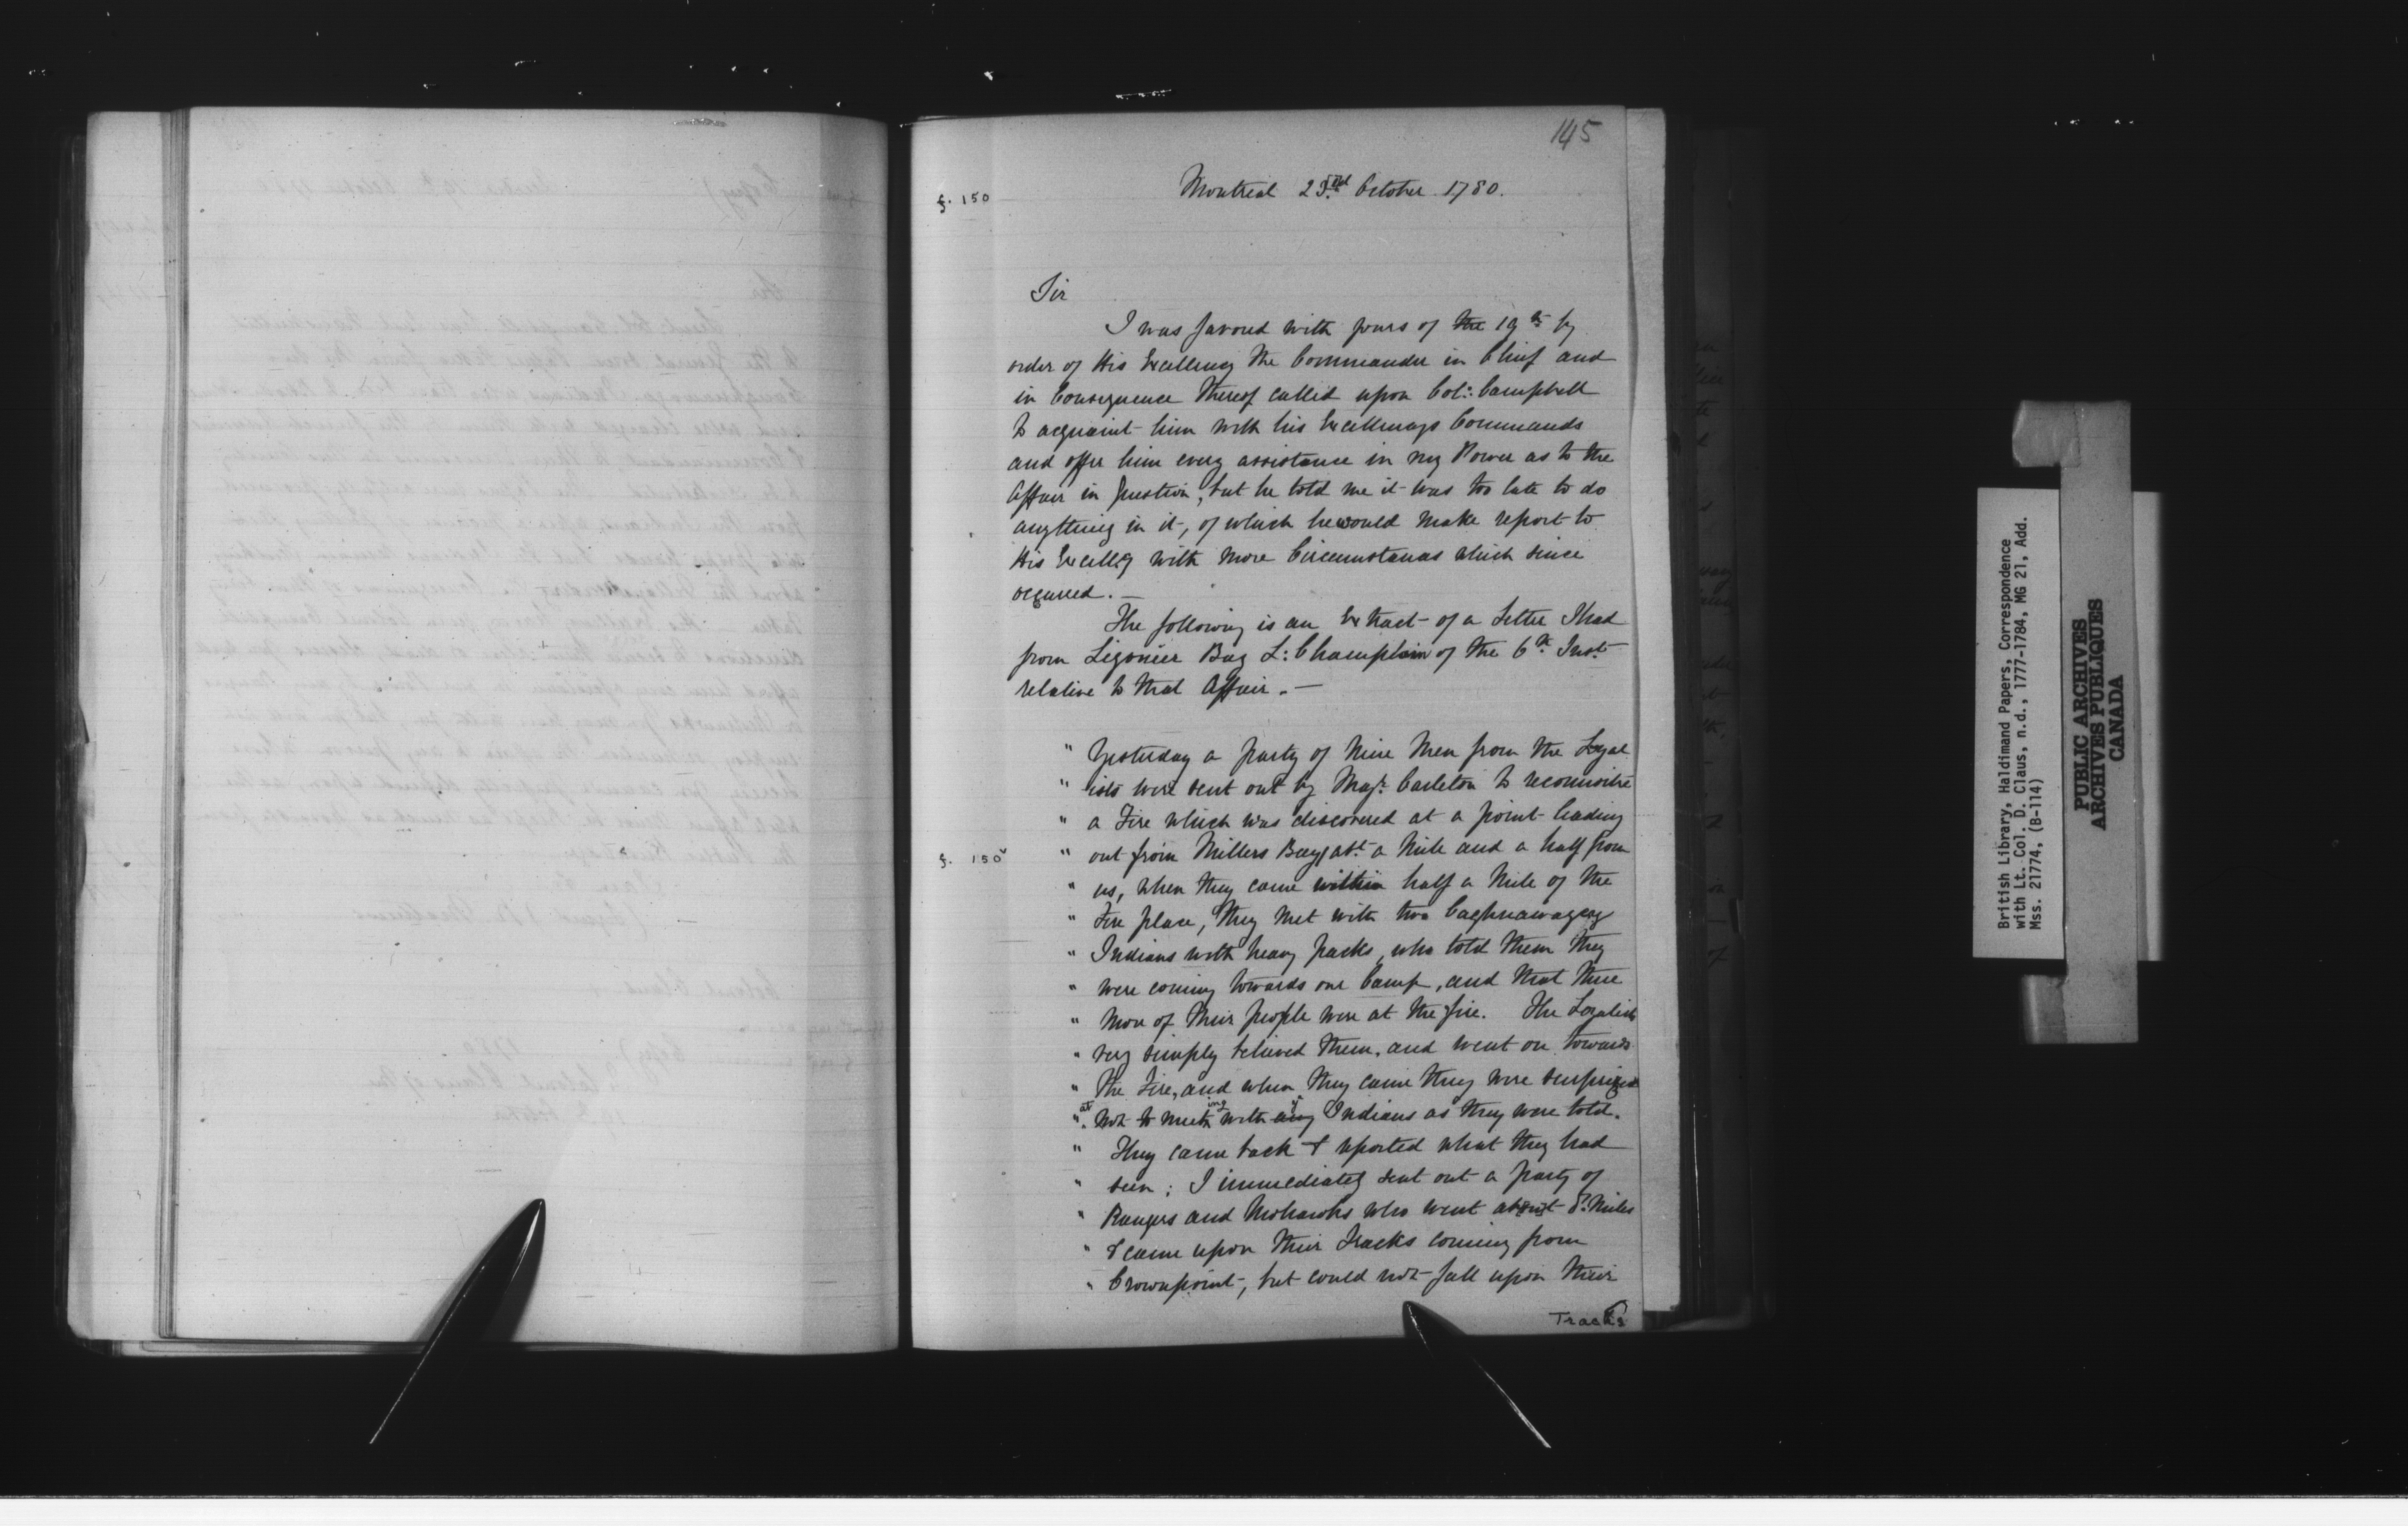 145
f. 150
Montreal 23rd October 1780.
Sir
I was favored with yours of the 19th by
order of His Excellency the Commander in Chief and
in Consequence thereof called upon Col: Campbell
to acquaint him with his Excellencys Commands
and offer him every assistance in my Power as to the
Affair in Question, but he told me it was too late to do
anything in it, of which he would make report to
His Excellcy with more Circumstances which since
occurred. —
The following is an Extract of a Letter I had
from Ligonier Bay L: Champlain of the 6th Inst
relative to that Affair. —
" Yesterday a party of Nine Men from the Loyal
" ists were sent out by Majr Carleton to reconnoitre
" a Fire which was discovered at a point leading
f. 150v
" out from Millers Bay, abt a Mile and a half from
" us, when they came within half a Mile of the
" Fire place, they met with two Caghnawagey
" Indians with heavy packs, who told them they
" were coming towards our Camp, and that three
" More of their people were at the fire. The Loyalists
" very simply believed them, and went on towards
" the Fire, and when they came they were surprized
" at not to meeting with any Indians as they were told.
" They came back & reported what they had
" seen; I immediately sent out a party of
" Rangers and Mohawks who went about 8 Miles
" & came upon their Tracks coming from
" Crownpoint, but could not fall upon their
Tracks
British Library, Haldimand Papers, Correspondence
with Lt. Col. D. Claus, n.d., 1777-1784, MG 21, Add.
Mss. 21774, (B-114)
PUBLIC ARCHIVES
ARCHIVES PUBLIQUES
CANADA